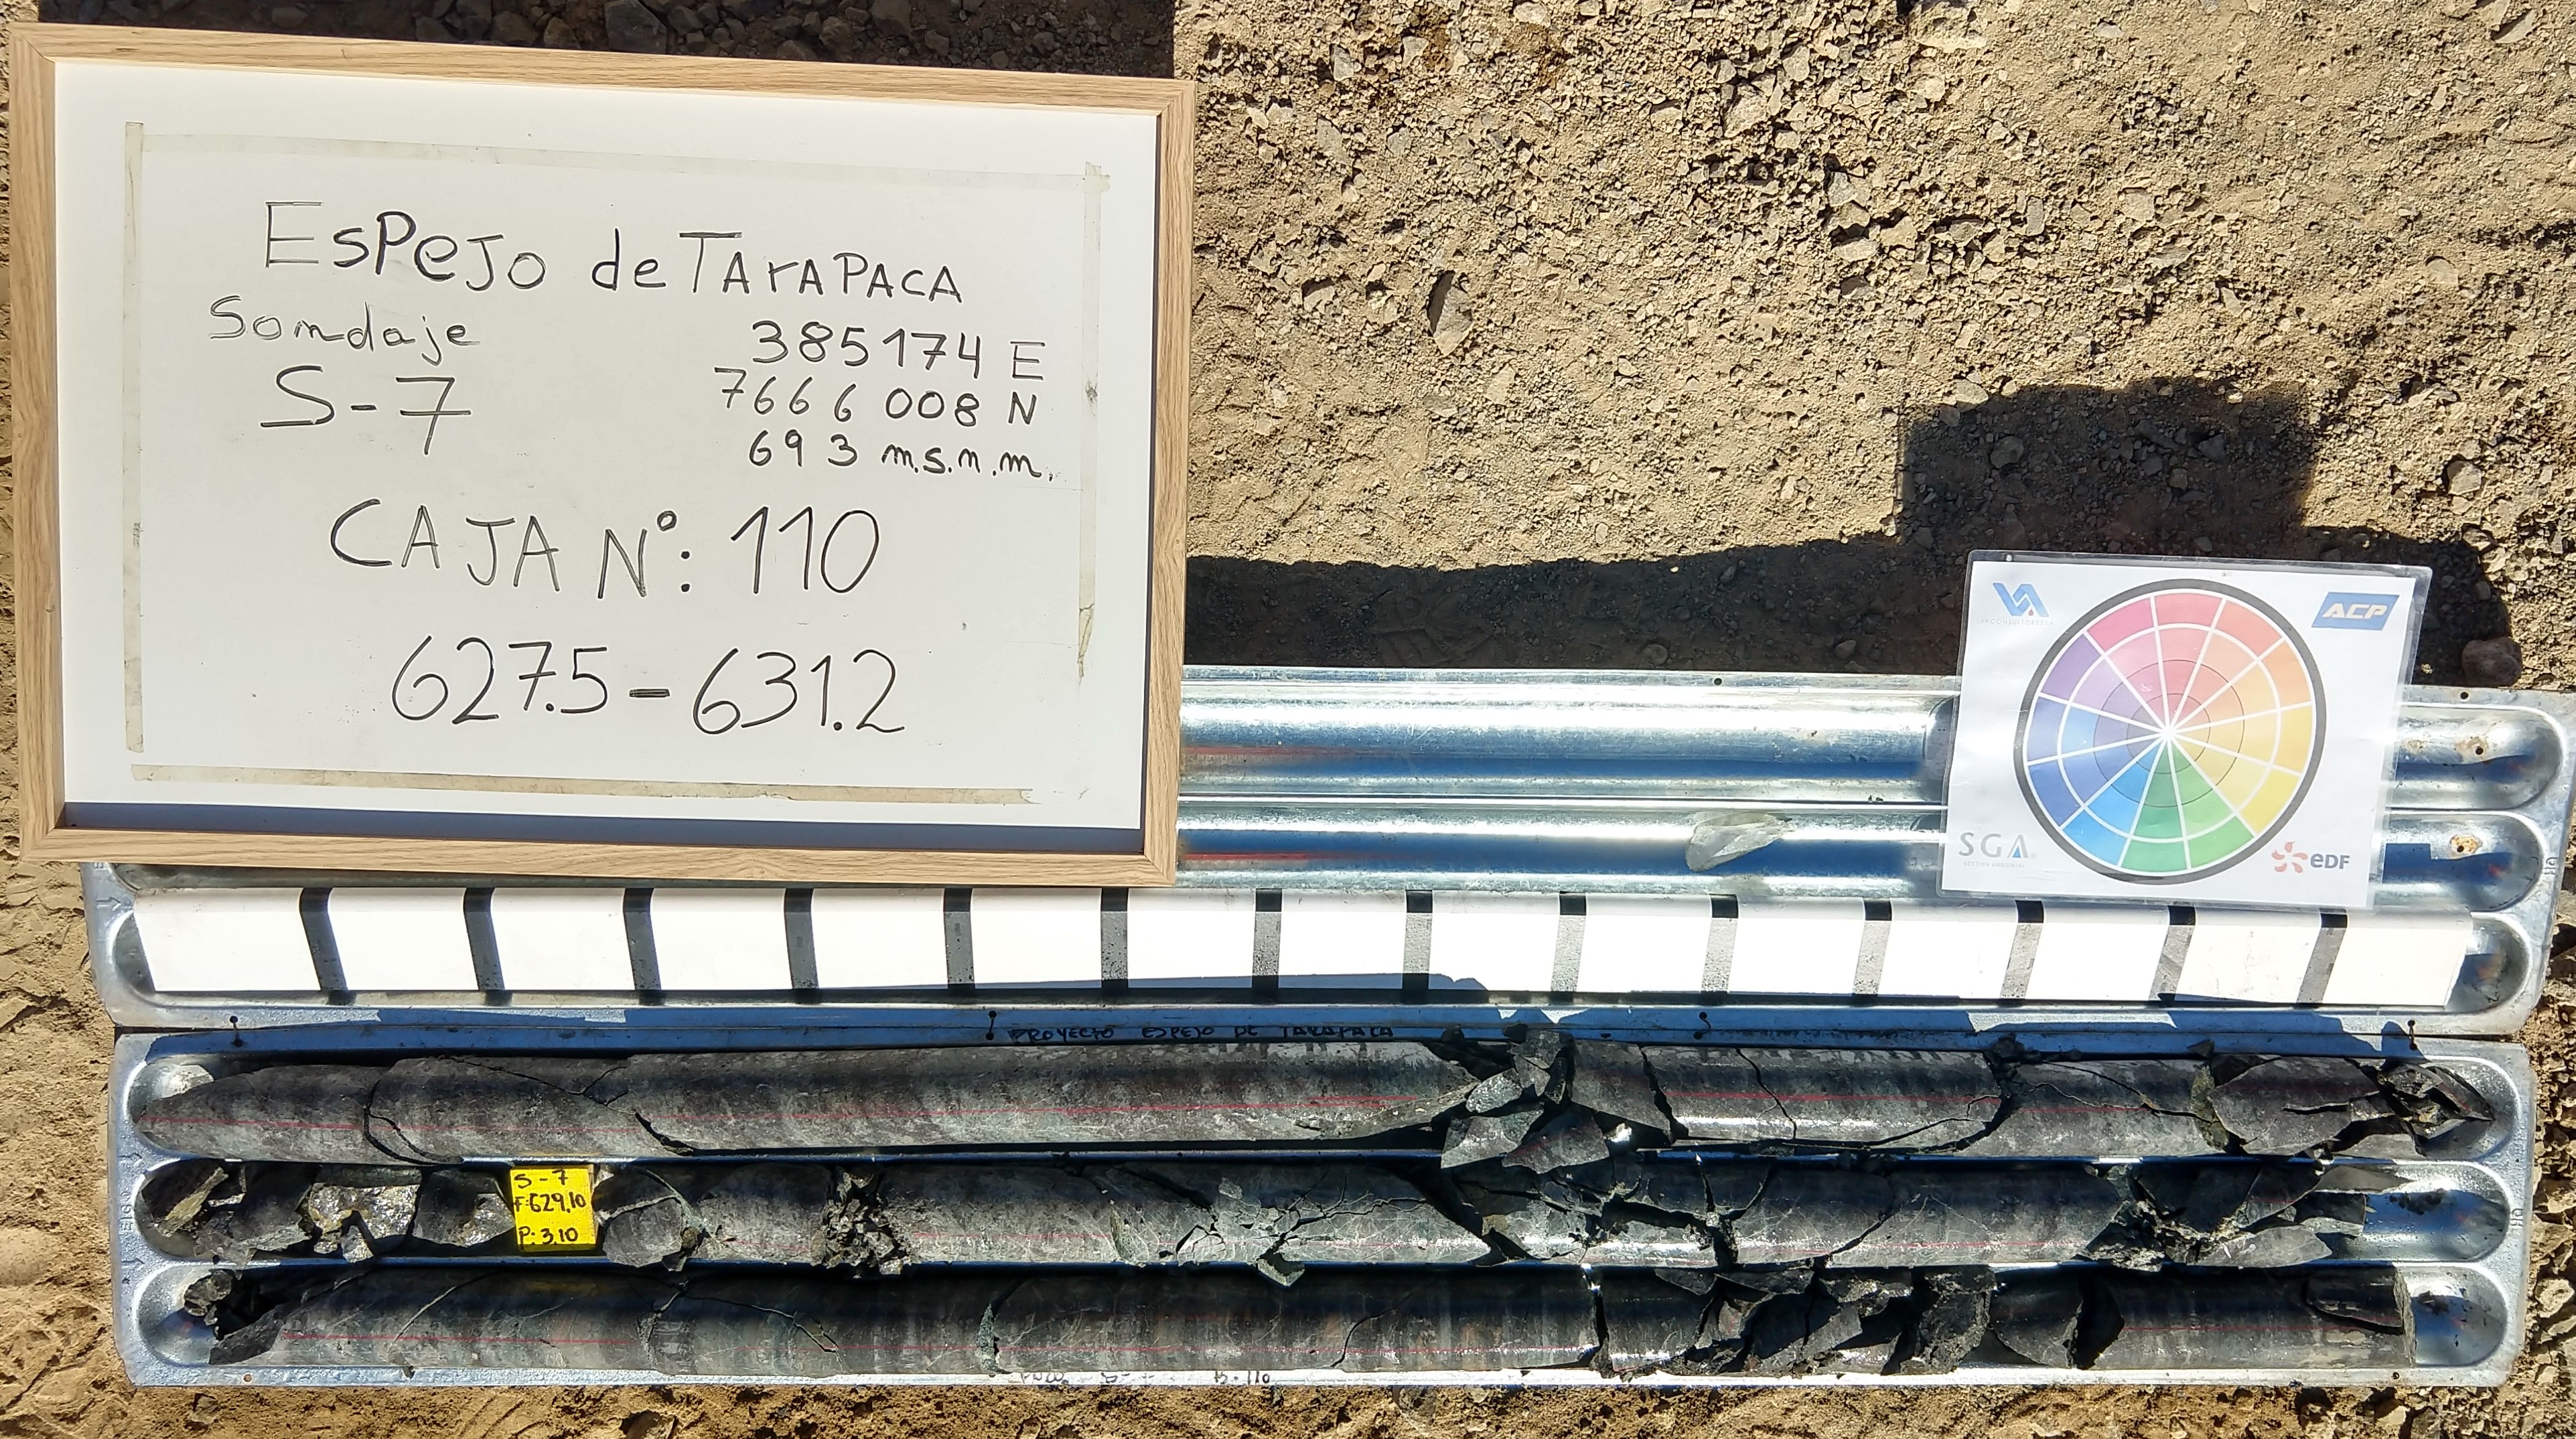 EsPeJo de TArAPACA
Sondaje
385174 E
S-7
7666 008 N
693 m.s.n.m.
CAJA N°: 110
627.5-631.2
ACP
SGA
eDF
PROYECTO ESPEJO DE TARAPACA
S-7
F:629,10
P:3.10